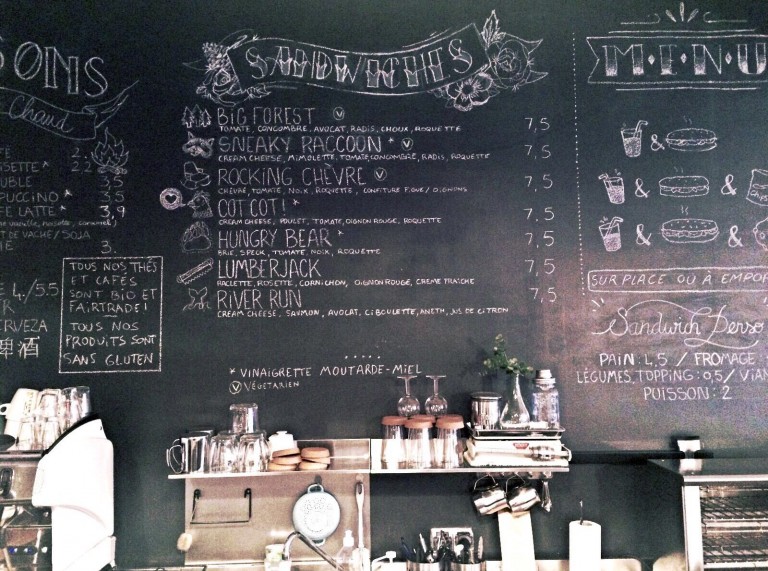 SONS
Chaud
2.
2.2
UBLE 3,5
PUCCINO * 3,5
FE LATTE * 3,9
T DE VACHE / SOJA
3.
TOUS NOS THÉS
ET CAFÉS
SONT BIO ET
FAIRTRADE !
TOUS NOS
PRODUITS SONT
SANS GLUTEN
4./5.5
ERVEZA
啤酒
SANDWICHES
BIG FOREST Ⓥ 7,5
TOMATE, CONCOMBRE, AVOCAT, RADIS, CHOUX, ROQUETTE
SNEAKY RACCOON * Ⓥ 7,5
CREAM CHEESE, MIMOLETTE, TOMATE, CONCOMBRE, RADIS, ROQUETTE
ROCKING CHÈVRE Ⓥ 7,5
CHÈVRE, TOMATE, NOIX, ROQUETTE, CONFITURE FIGUE / OIGNONS
COT COT ! * 7,5
CREAM CHEESE, POULET, TOMATE, OIGNON ROUGE, ROQUETTE
HUNGRY BEAR * 7,5
BRIE, SPECK, TOMATE, NOIX, ROQUETTE
LUMBERJACK 7,5
RACLETTE, ROSETTE, CORNICHON, OIGNON ROUGE, CREME FRAICHE
RIVER RUN 7,5
CREAM CHEESE, SAUMON, AVOCAT, CIBOULETTE, ANETH, JUS DE CITRON
* VINAIGRETTE MOUTARDE-MIEL
Ⓥ VÉGÉTARIEN
MENU
&
& &
& &
SUR PLACE OU À EMPOR
Sandwich Perso
PAIN: 4,5 / FROMAGE
LÉGUMES, TOPPING: 0,5 / VIAN
PUISSON: 2